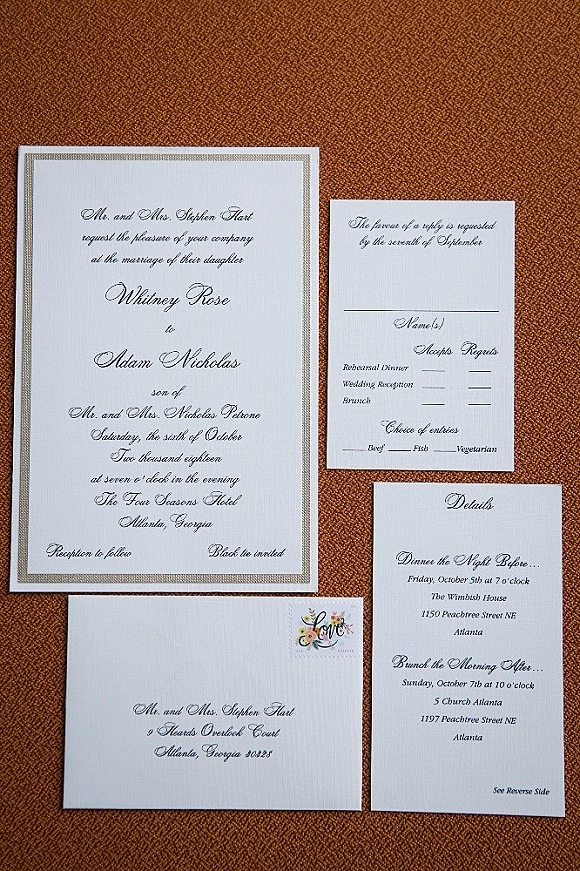 Mr. and Mrs. Stephen Hart
request the pleasure of your company
at the marriage of their daughter
Whitney Rose
to
Adam Nicholas
son of
Mr. and Mrs. Nicholas Petrone
Saturday, the sixth of October
Two thousand eighteen
at seven o'clock in the evening
The Four Seasons Hotel
Atlanta, Georgia
Reception to follow
Black tie invited
The favour of a reply is requested
by the seventh of September
Name(s)
Accepts Regrets
Rehearsal Dinner
Wedding Reception
Brunch
Choice of entrées
Beef Fish Vegetarian
Love
Mr. and Mrs. Stephen Hart
9 Heards Overlook Court
Atlanta, Georgia 30328
Details
Dinner the Night Before...
Friday, October 5th at 7 o'clock
The Wimbish House
1150 Peachtree Street NE
Atlanta
Brunch the Morning After...
Sunday, October 7th at 10 o'clock
5 Church Atlanta
1197 Peachtree Street NE
Atlanta
See Reverse Side